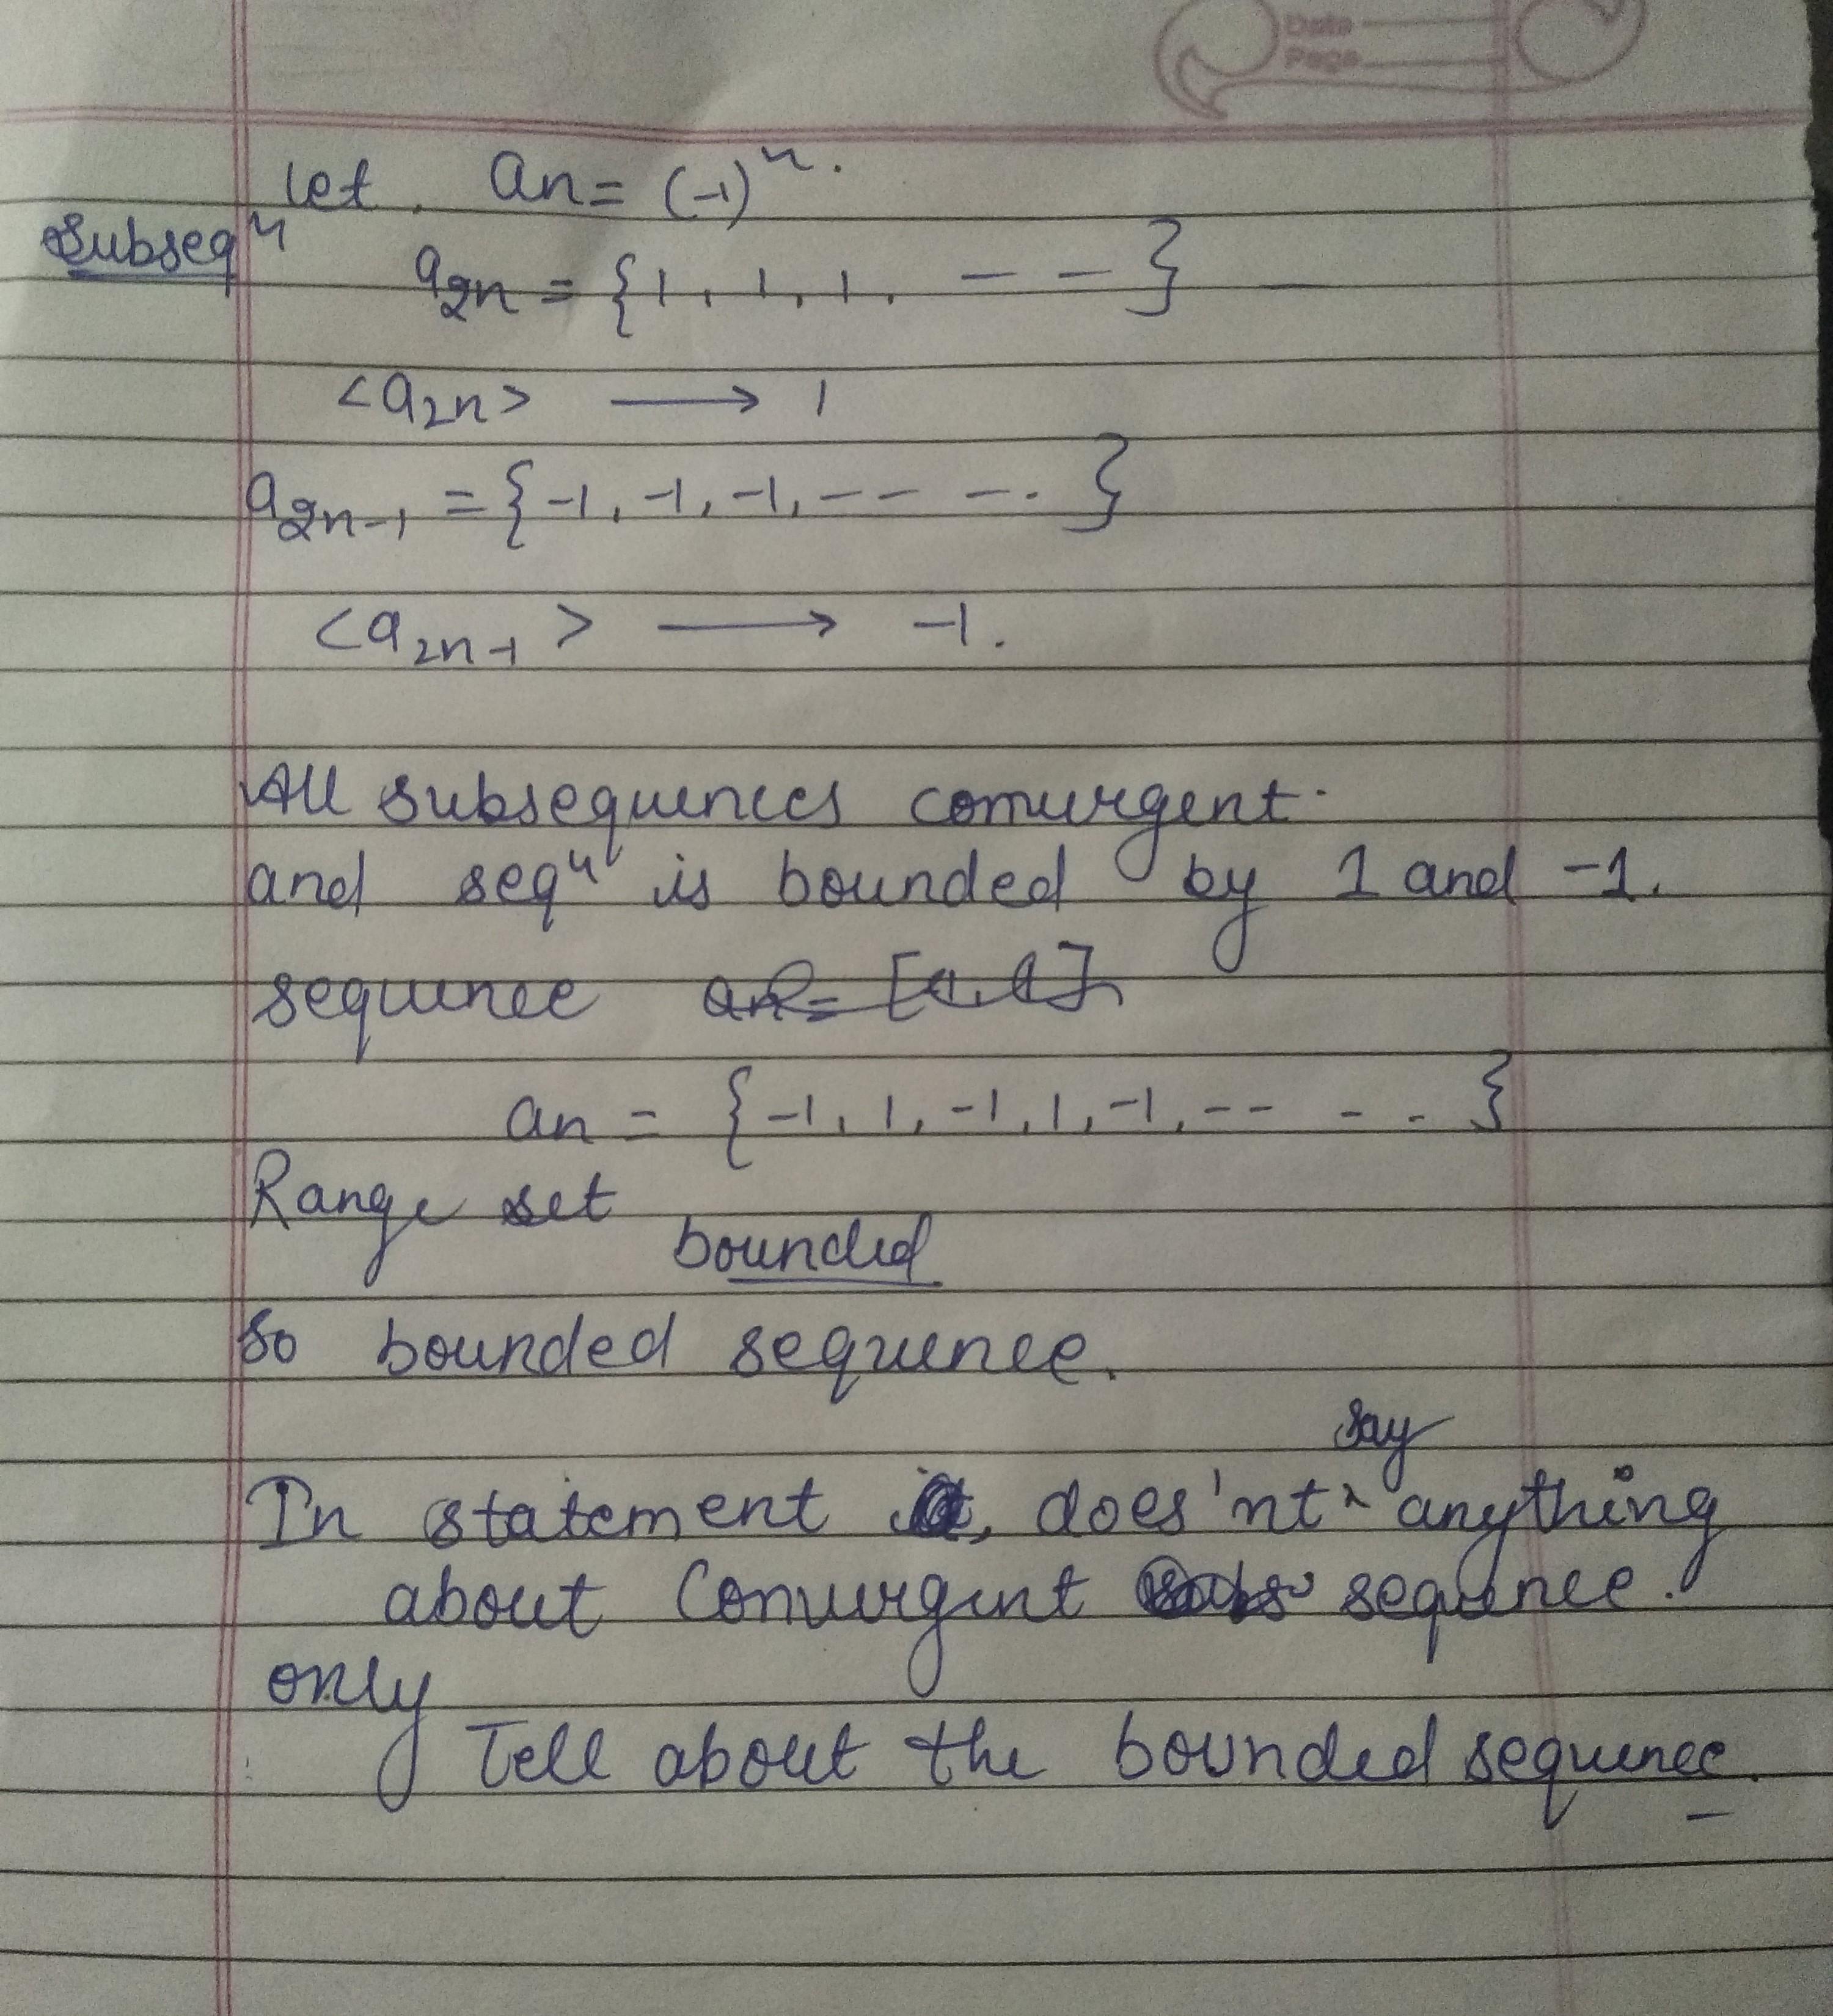 Date
Page
let. an = (-1)^n.
Subseq^n
a_2n = {1, 1, 1, - - }
<a_2n> ⟶ 1
a_2n-1 = {-1, -1, -1, - - - . }
<a_2n-1> ⟶ -1.
All subsequences convergent.
and seq^n is bounded by 1 and -1.
sequence
an = {-1, 1, -1, 1, -1, - - - - }
Range set
bounded
So bounded sequence.
say
In statement , does'nt ^ anything
about Convergent sequence.
only
Tell about the bounded sequence.